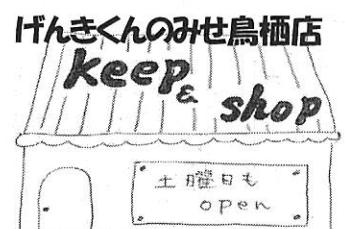 げんきくんのみせ鳥栖店
keep
&
shop
土曜日も
open